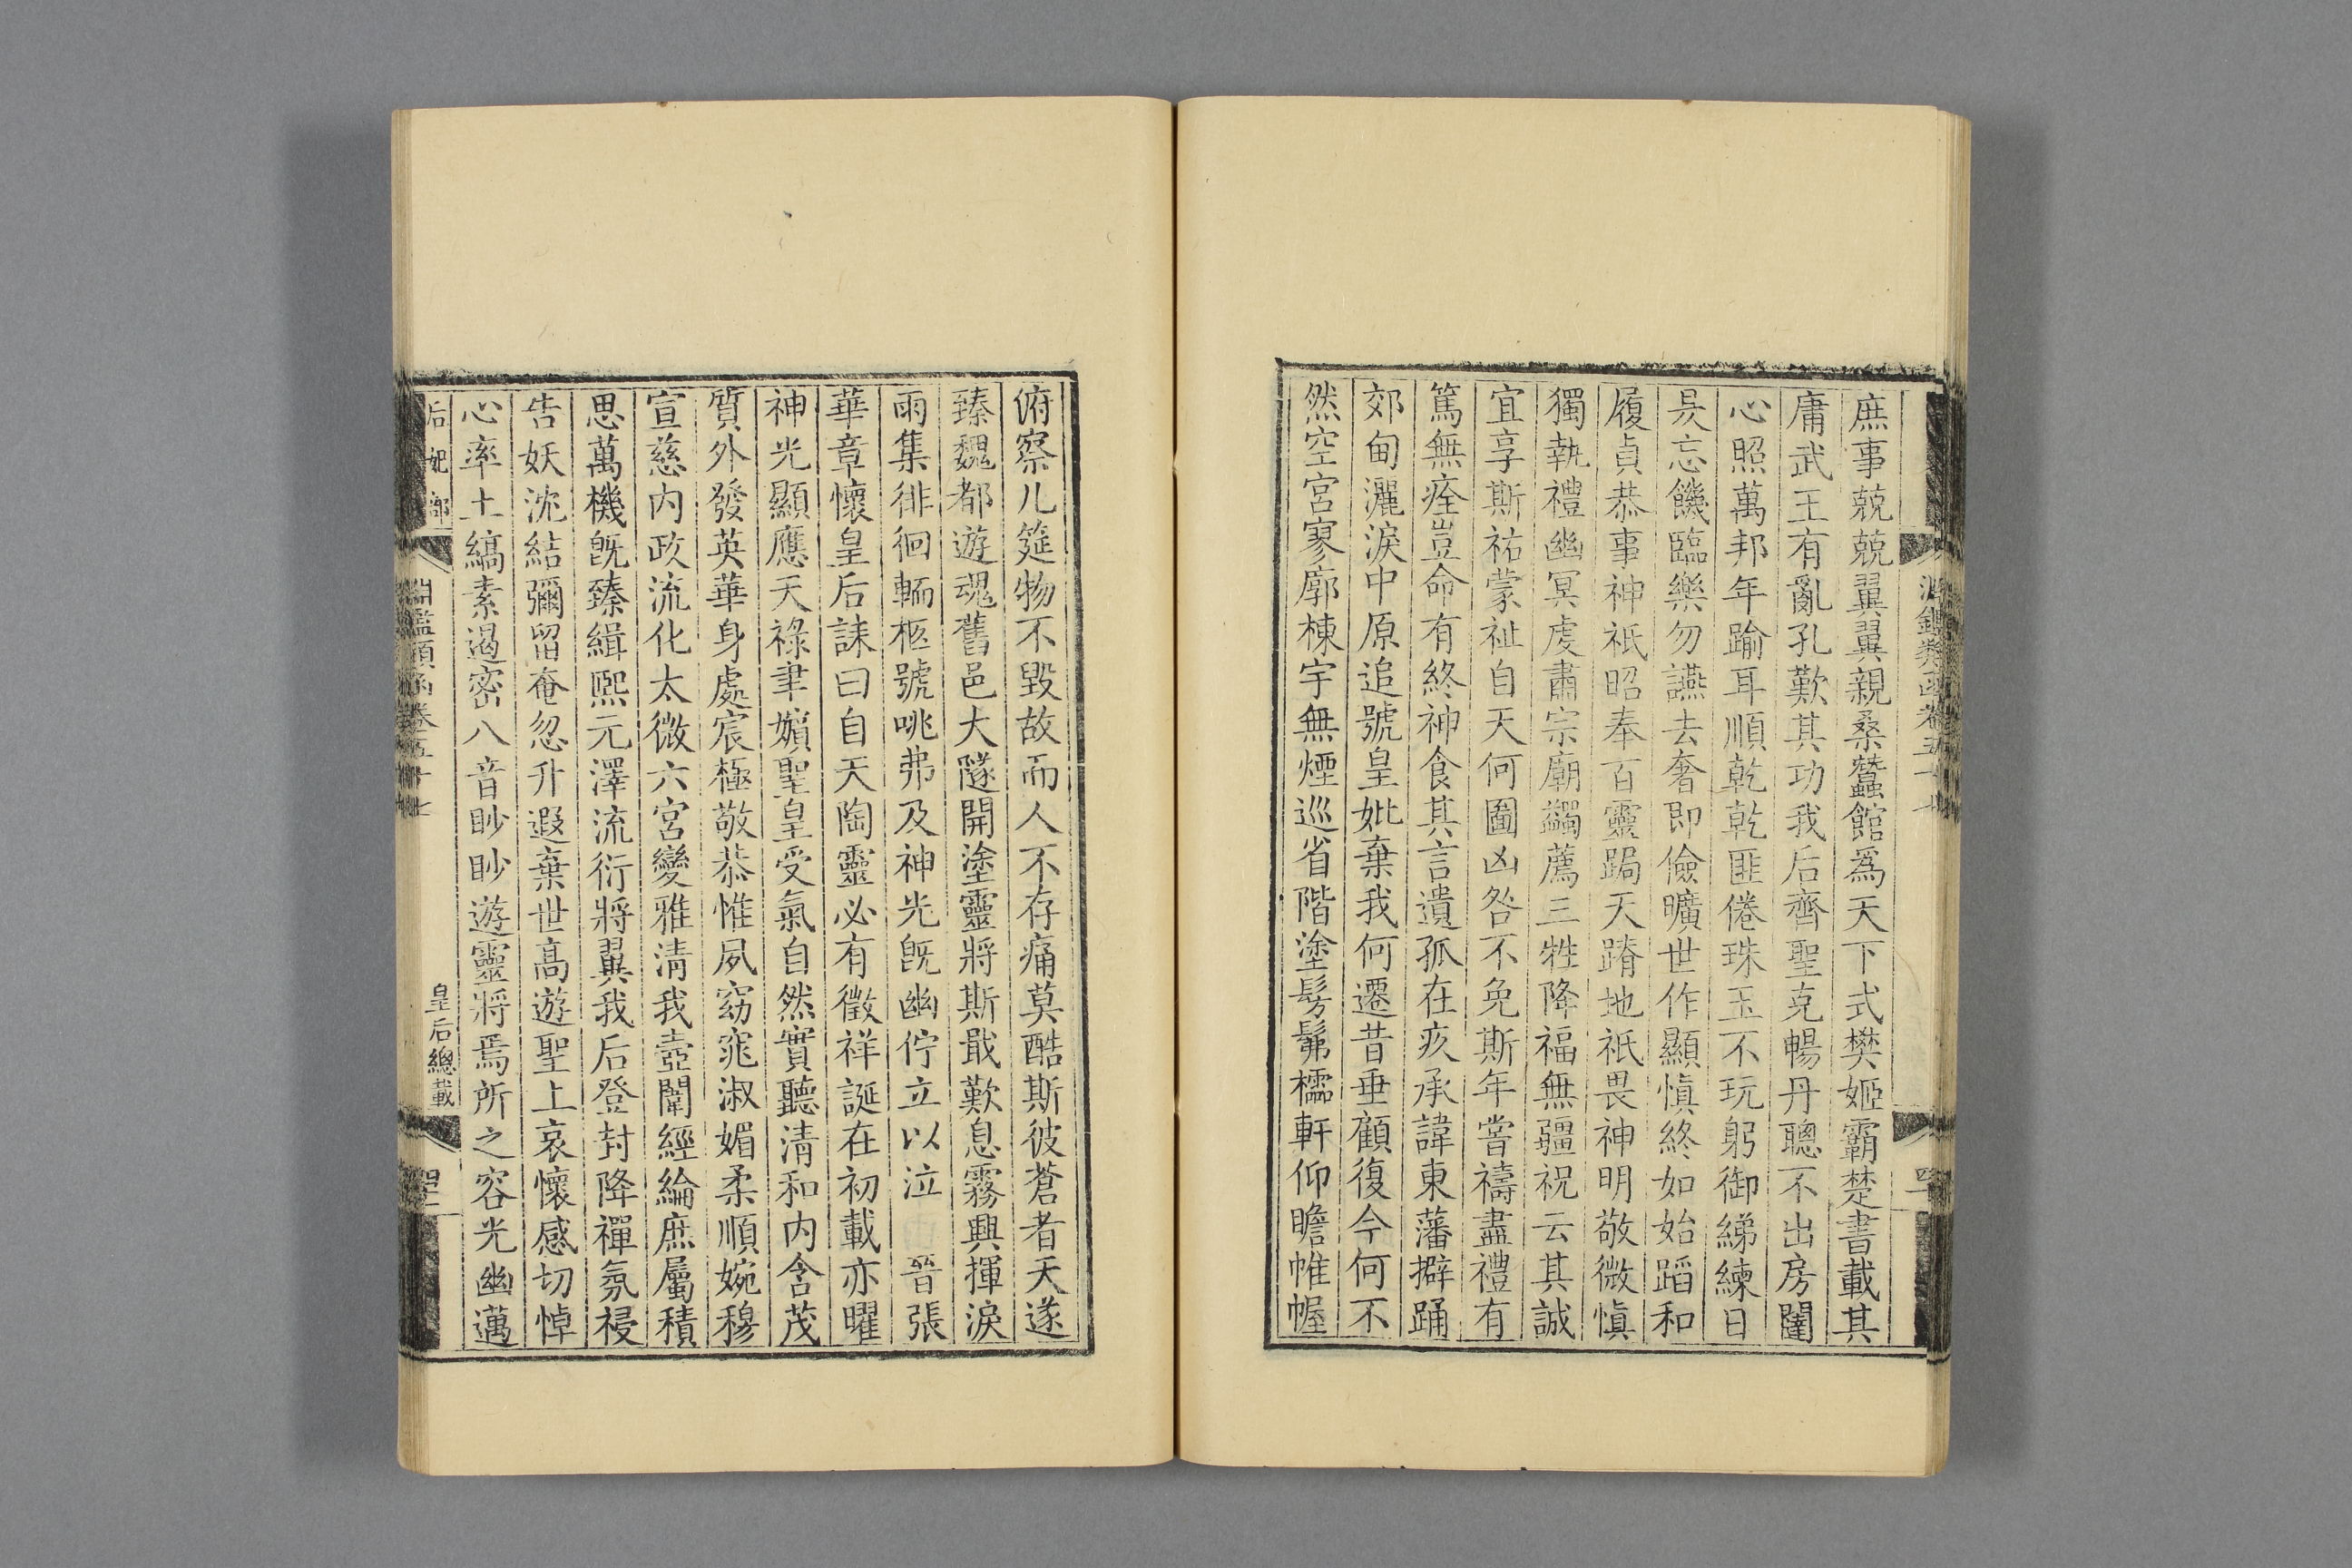 庶事兢兢翼翼親桑蠶館爲天下式樊姬霸楚書載其
庸武王有亂孔歎其功我后齊聖克暢丹聰不出房闥
心照萬邦年踰耳順乾乾匪倦珠玉不玩躬御綈練日
昃忘饑臨樂勿讌去奢即儉曠世作顯慎終如始蹈和
履貞恭事神祇昭奉百靈跼天蹐地祇畏神明敬微慎
獨執禮幽冥虔肅宗廟蠲薦三牲降福無疆祝云其誠
宜享斯祐蒙祉自天何圖凶咎不免斯年嘗禱盡禮有
篤無痊豈命有終神食其言遺孤在疚承諱東藩擗踊
郊甸灑淚中原追號皇妣棄我何遷昔垂顧復今何不
然空宮寥廓棟宇無煙巡省階塗髣髴櫺軒仰瞻帷幄
俯察几筵物不毀故而人不存痛莫酷斯彼蒼者天遂
臻魏都遊魂舊邑大隧開塗靈將斯戢歎息霧興揮淚
雨集徘徊輀柩號咷弗及神光旣幽佇立以泣 晉張
華章懷皇后誄曰自天陶靈必有徵祥誕在初載亦曜
神光顯應天祿聿嬪聖皇受氣自然實聽清和内含茂
質外發英華身處宸極敬恭惟夙窈窕淑媚柔順婉穆
宣慈内政流化太微六宮變雅清我壼闈經綸庶屬積
思萬機旣臻緝熙元澤流衍將翼我后登封降禪氛祲
告妖沈結彌留奄忽升遐棄世高遊聖上哀懷感切悼
心率土縞素遏密八音眇眇遊靈將焉所之容光幽邁
后妃部 淵鑑類函卷五十七 皇后總載